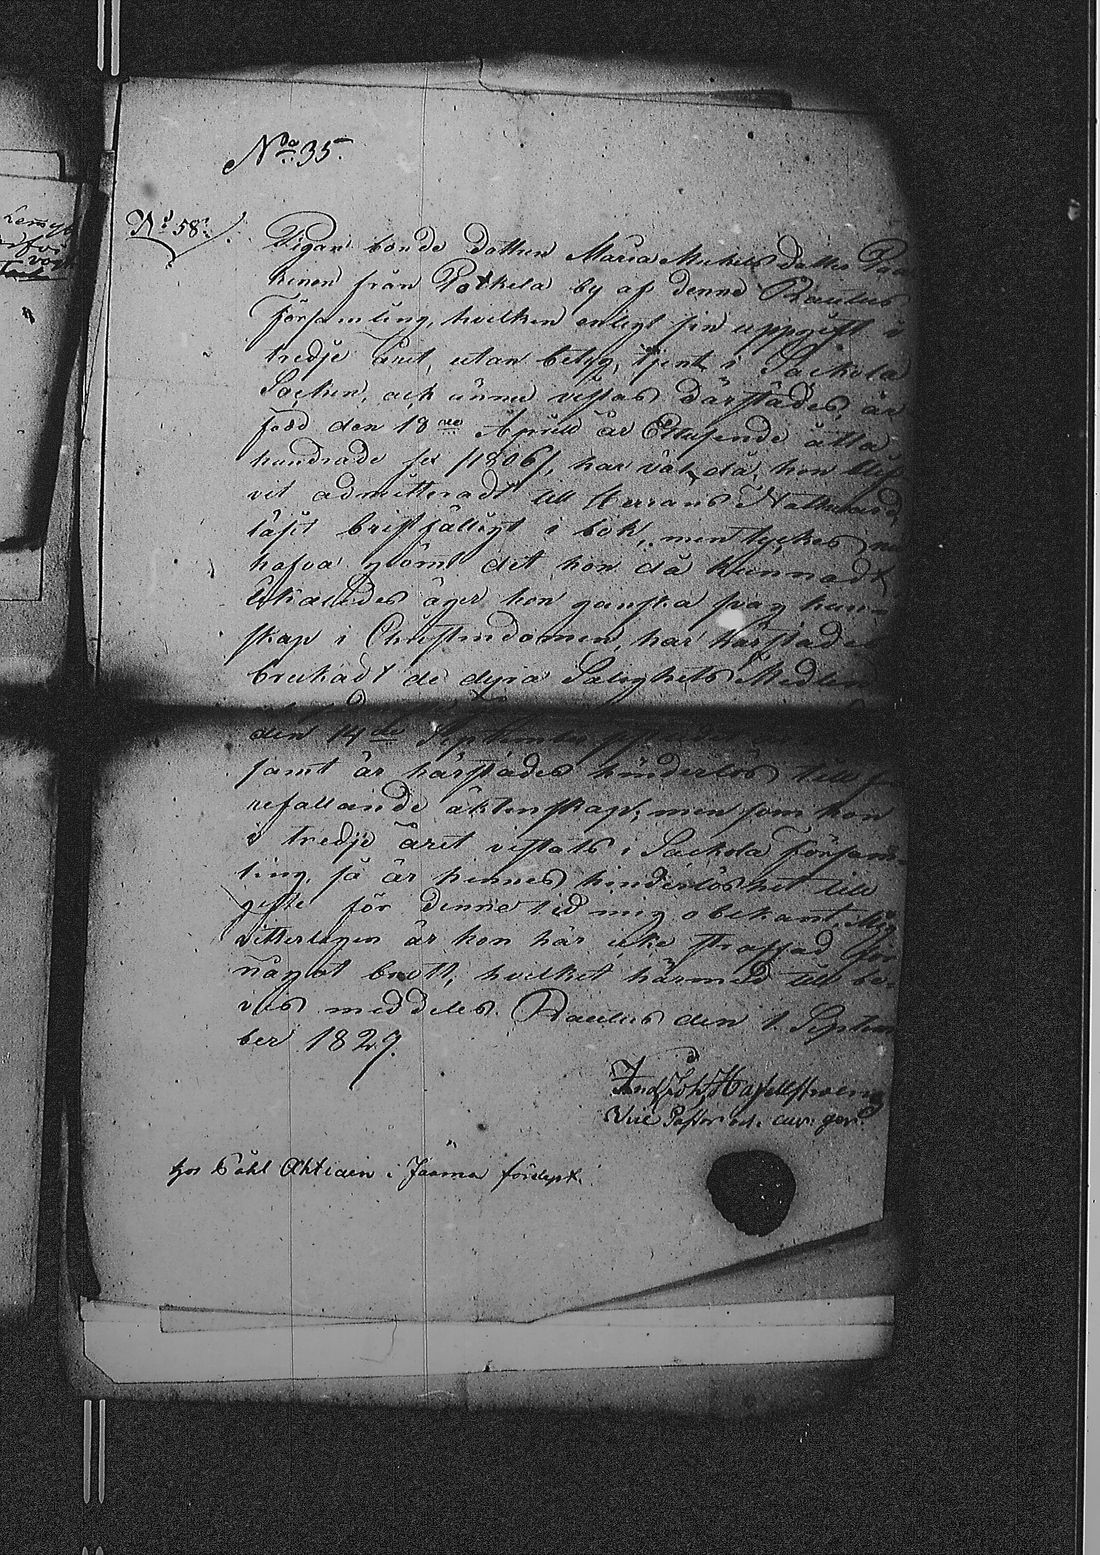 No 35.
No 58.
Pigan bonde dottren Maria Mickels dotter
kinen från Potkela by af denna Pauttus
Församling, hvilken enligt sin uppgift i
tredje året, utan betyg, tjent i Sackola
Socken, och ännu vistas därstädes, är
född den 18de April år Ettusende åtta
hundrade sex /1806/, har väl då hon blif-
vit admitterad till Herrans Nattvard
läsit bristfälligt i bok, men tyckes nu
hafva glömt det hon då kunnadt
Likaledes äger hon ganska svag kun-
skap i Christendomen, har härstädes
brukadt de dyra Salighets Medlen
den 14de September
samt är härstädes hinderlös till fö-
refallande äktenskap; men som hon
i tredje året vistats i Sackola Försam-
ling, så är hennes hinderlöshet till
gifte för denne tid mig obekant.
vitterligen är hon här icke straffad för
något brott, hvilket härmed till be-
vis meddeles. Pauttus den 1. Septem
ber 1827.
And. Joh. Hassellstroem
Vice Pastor
hos Påhl Oktiain i Jaama